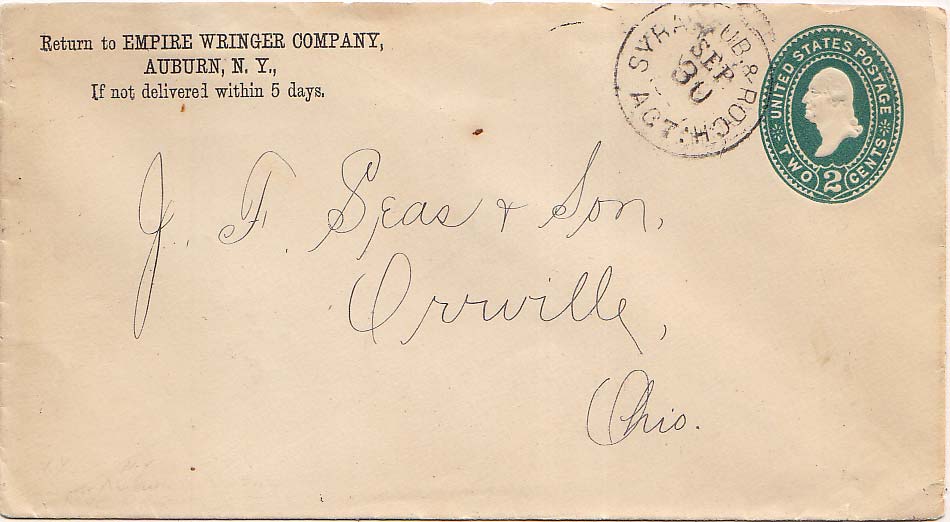 Return to EMPIRE WRINGER COMPANY,
AUBURN, N. Y.,
If not delivered within 5 days.
SYRA. AUB & ROCH. AGT.
SEP
30
UNITED STATES POSTAGE
TWO 2 CENTS
J. F. Seas & Son,
Orrville,
Ohio.